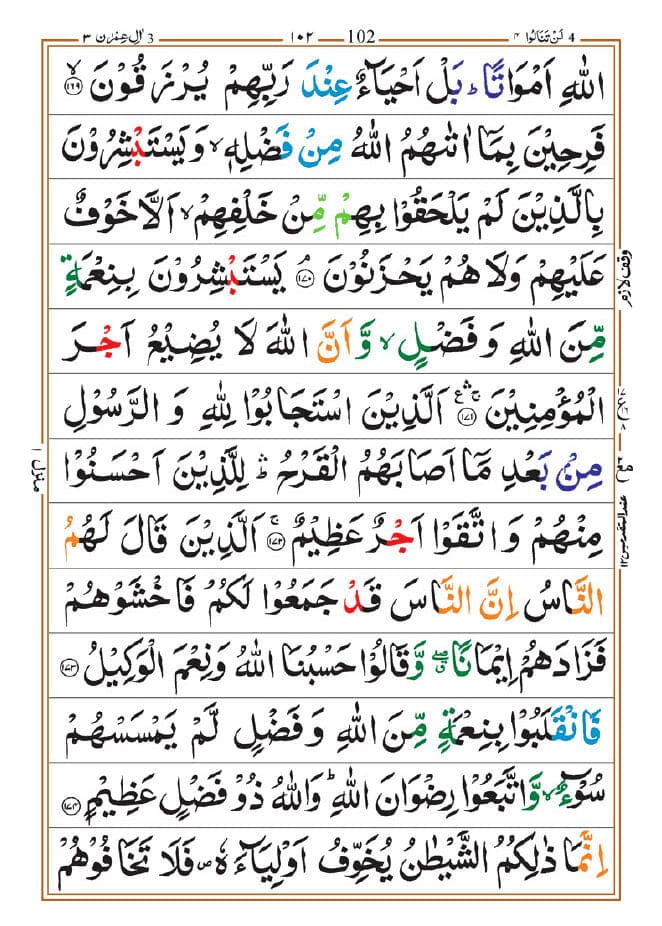 لَنْ تَنَالُوا ۴ 4 102 ۱۰۲ اٰلِ عِمْرٰن ۳ 3
اللّٰهِ اَمْوَاتًا ؕ بَلْ اَحْيَآءٌ عِنْدَ رَبِّهِمْ يُرْزَقُوْنَ ۙ‏﴿۱۶۹﴾
فَرِحِيْنَ بِمَاۤ اٰتٰٮهُمُ اللّٰهُ مِنْ فَضْلِهٖ ۙ وَيَسْتَبْشِرُوْنَ
بِالَّذِيْنَ لَمْ يَلْحَقُوْا بِهِمْ مِّنْ خَلْفِهِمْ ۙ اَلَّا خَوْفٌ
عَلَيْهِمْ وَلَا هُمْ يَحْزَنُوْنَ ۘ‏﴿۱۷۰﴾ يَسْتَبْشِرُوْنَ بِنِعْمَةٍ
وقف لازم
مِّنَ اللّٰهِ وَفَضْلٍ ۙ وَّاَنَّ اللّٰهَ لَا يُضِيْعُ اَجْرَ
الْمُؤْمِنِيْنَ ۛۚ ‏﴿۱۷۱﴾ اَلَّذِيْنَ اسْتَجَابُوْا لِلّٰهِ وَالرَّسُوْلِ
مِنْۢ بَعْدِ مَاۤ اَصَابَهُمُ الْقَرْحُ ۛؕ لِلَّذِيْنَ اَحْسَنُوْا
منزل ۱
مِنْهُمْ وَاتَّقَوْا اَجْرٌ عَظِيْمٌ ۚ‏﴿۱۷۲﴾ اَلَّذِيْنَ قَالَ لَهُمُ
النَّاسُ اِنَّ النَّاسَ قَدْ جَمَعُوْا لَكُمْ فَاخْشَوْهُمْ
فَزَادَهُمْ اِيْمَانًا ۖ وَّقَالُوْا حَسْبُنَا اللّٰهُ وَنِعْمَ الْوَكِيْلُ‏ ﴿۱۷۳﴾
فَانْقَلَبُوْا بِنِعْمَةٍ مِّنَ اللّٰهِ وَفَضْلٍ لَّمْ يَمْسَسْهُمْ
سُوْٓءٌ ۙ وَّاتَّبَعُوْا رِضْوَانَ اللّٰهِ ؕ وَاللّٰهُ ذُوْ فَضْلٍ عَظِيْمٍ‏ ﴿۱۷۴﴾
اِنَّمَا ذٰلِكُمُ الشَّيْطٰنُ يُخَوِّفُ اَوْلِيَآءَهٗ ۖ فَلَا تَخَافُوْهُمْ